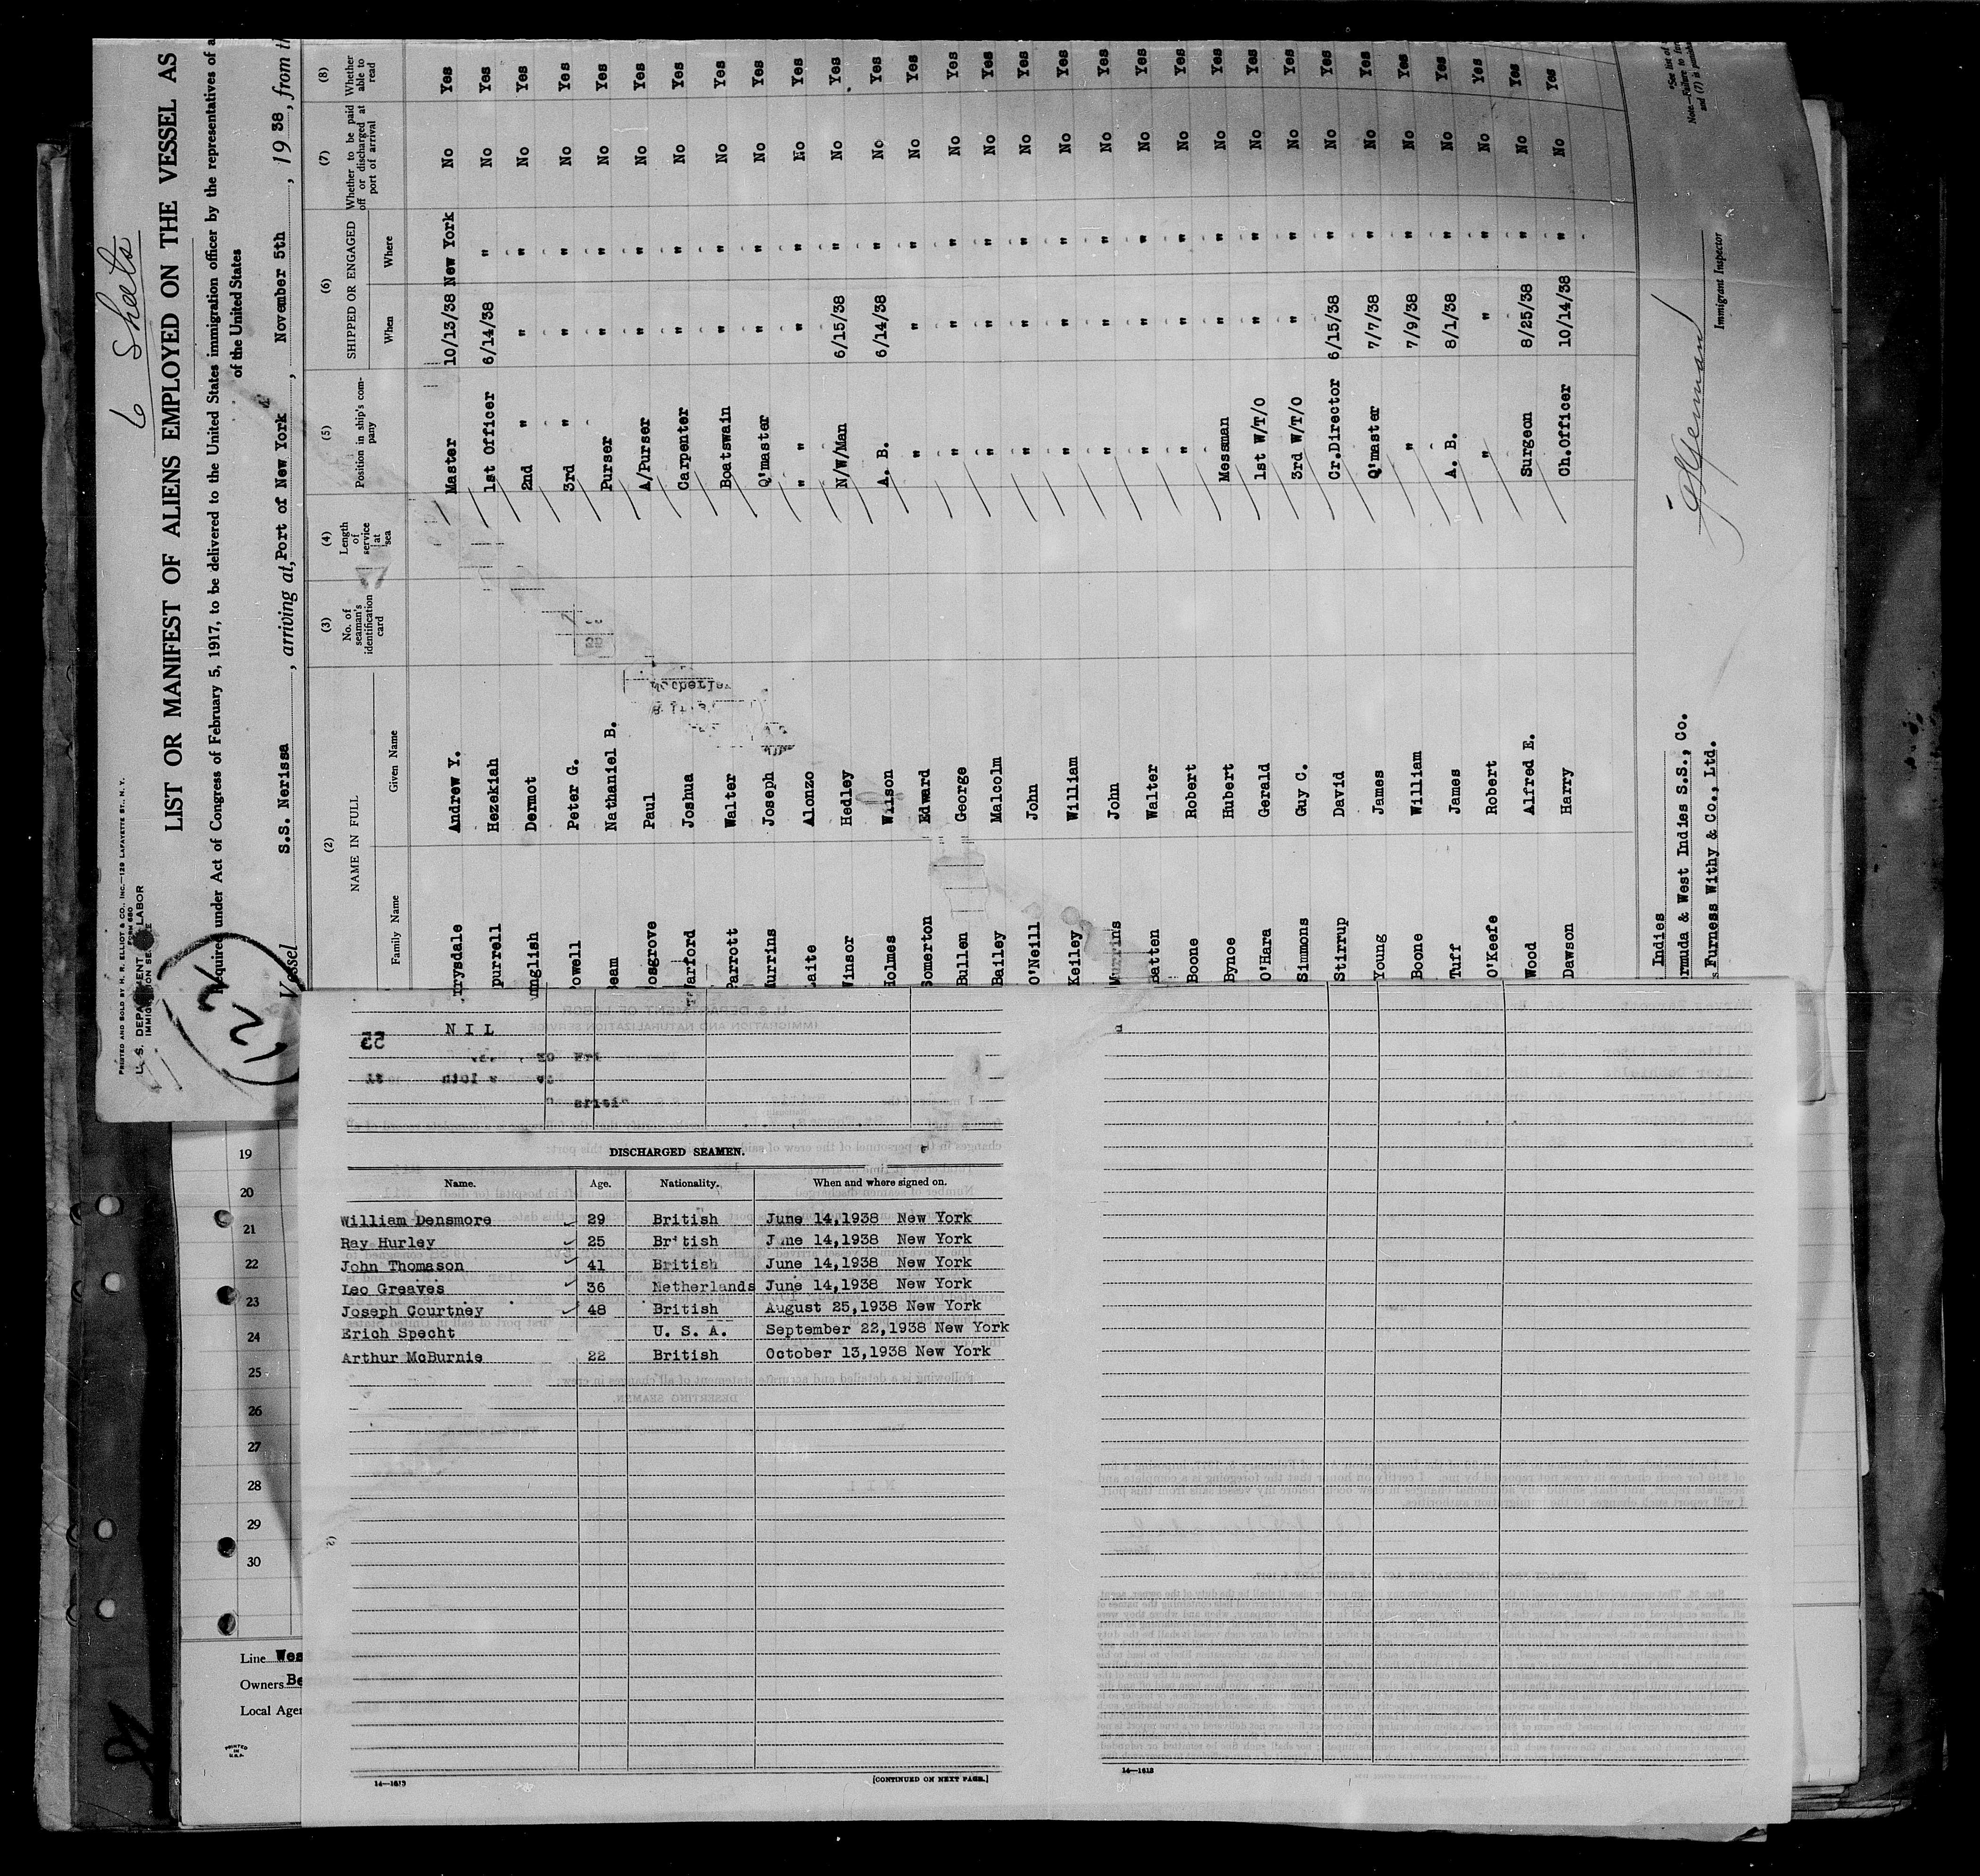 6 Shets
PRINTED AND SOLD BY H. R. ELLIOT & CO., INC.—129 LAFAYETTE ST., N. Y.
FORM 680
U. S. DEPARTMENT LABOR
IMMIGRATION
LIST OR MANIFEST OF ALIENS EMPLOYED ON THE VESSEL AS
under Act of Congress of February 5, 1917, to be delivered to the United States immigration officer by the representatives of a
of the United States
Vessel S.S. Nerissa, arriving at, Port of New York, November 5th, 19 38, from
(2) (3) (4) (5) (6) (7) (8)
NAME IN FULL
Family Name Given Name
No. of seaman's identification card
Length of service at sea
Position in ship's company
SHIPPED OR ENGAGED
When Where
Whether to be paid off or discharged at port of arrival
Whether able to read
rysdale Andrew Y. Master 10/13/38 New York No Yes
purrell Hezekiah 1st Officer 6/14/38 " No Yes
nglish Dermot 2nd " " " No Yes
owell Peter G. 3rd " " " No Yes
eam Nathaniel B. Purser " " No Yes
osgrove Paul A/Purser " " No Yes
arford Joshua Carpenter " " No Yes
arrott Walter Boatswain " " No Yes
urrins Joseph Q'master " " No Yes
aite Alonzo " " " " No Yes
insor Hedley N/W/Man 6/15/38 " No Yes
olmes Wilson A. B. 6/14/38 " No Yes
omerton Edward " " " No Yes
Bullen George " " " No Yes
Bailey Malcolm " " " No Yes
O'Neill John " " " No Yes
Keiley William " " " No Yes
Murrins John " " " No Yes
Batten Walter " " " No Yes
Boone Robert " " " No Yes
Bynoe Hubert Messman " " No Yes
O'Hara Gerald 1st W/T/O " " No Yes
Simmons Guy C. 3rd W/T/O " " No Yes
Stirrup David Cr.Director 6/15/38 " No Yes
Young James Q'master 7/7/38 " No Yes
Boone William " 7/9/38 " No Yes
Tuff James A. B. 8/1/38 " No Yes
O'Keefe Robert " " " No Yes
Wood Alfred E. Surgeon 8/25/38 " No Yes
Dawson Harry Ch.Officer 10/14/38 " No Yes
Indies
rmuda & West Indies S.S., Co.
Furness Withy & Co., Ltd.
Immigrant Inspector
*See list of
Note.—Failure to
and (7) is
NIL
DISCHARGED SEAMEN.
Name. Age. Nationality. When and where signed on.
William Densmore 29 British June 14,1938 New York
Ray Hurley 25 British June 14,1938 New York
John Thomason 41 British June 14,1938 New York
Leo Greaves 36 Netherlands June 14,1938 New York
Joseph Courtney 48 British August 25,1938 New York
Erich Specht U. S. A. September 22,1938 New York
Arthur McBurnie 22 British October 13,1938 New York
14—1613 [CONTINUED ON NEXT PAGE.]
14—1613
19
20
21
22
23
24
25
26
27
28
29
30
Line Wes
Owners Be
Local Agen
PRINTED IN U.S.A.